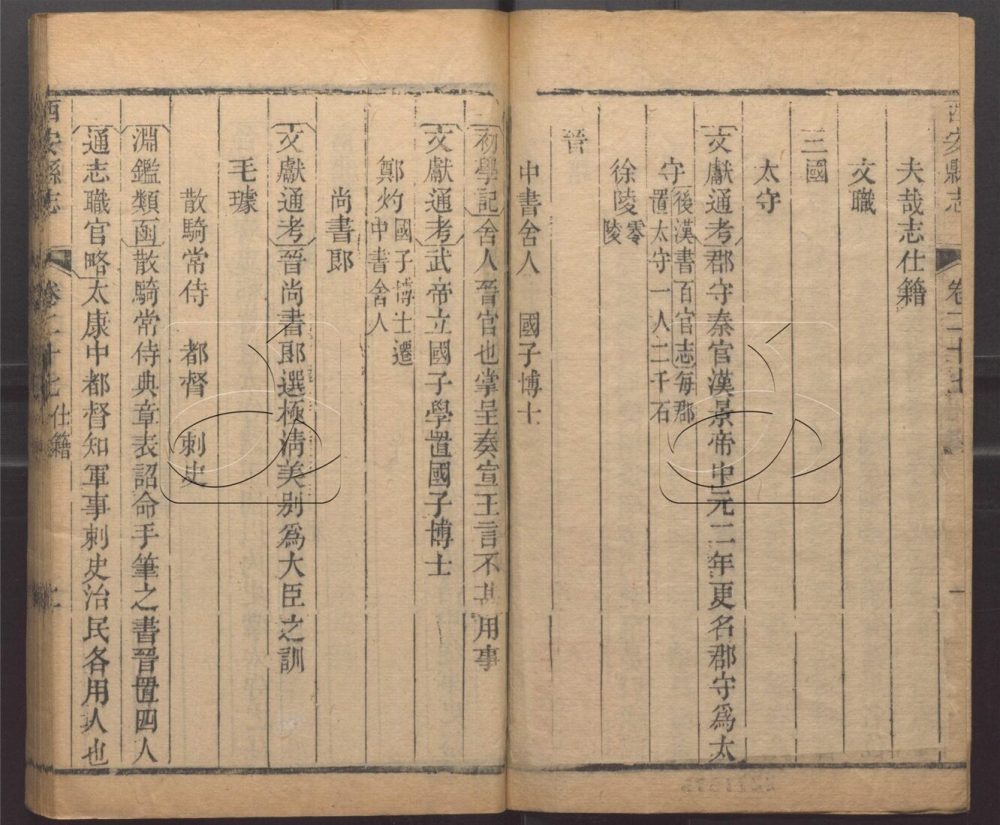 西安縣志
卷二十七
一
夫哉志仕籍
文職
三國
太守
文獻通考郡守秦官漢景帝中元二年更名郡守爲太
守後漢書百官志每郡
置太守一人二千石
徐陵零
陵
晉
中書舍人 國子博士
初學記舍人晉官也掌呈奏宣王言不 用事
文獻通考武帝立國子學置國子博士
鄭灼國子博士遷
中書舍人
尚書郎
文獻通考晉尚書郎選極淸美別爲大臣之訓
毛璩
散騎常侍 都督 刺史
淵鑑類函散騎常侍典章表詔命手筆之書晉置四人
通志職官略太康中都督知軍事刺史治民各用人也
西安縣志
卷二十七 仕籍